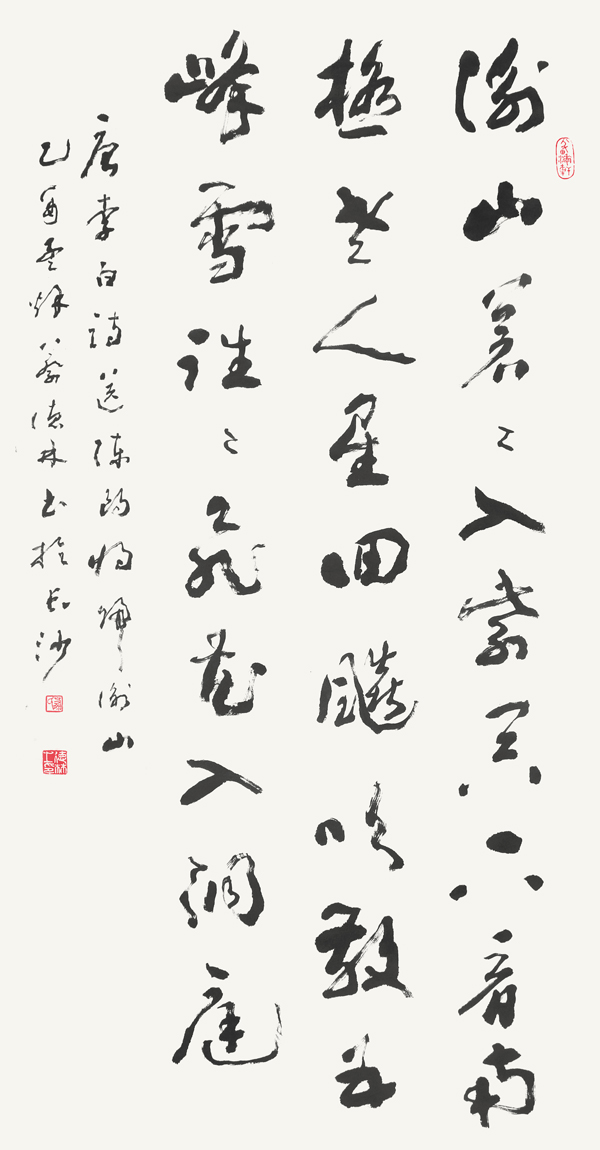 衡山蒼〻入紫冥下看南
極老人星回飆吹散五
峰雪往〻飛花入洞庭
唐李白詩送陳郎將歸衡山
乙酉孟秋蔡德林書於長沙